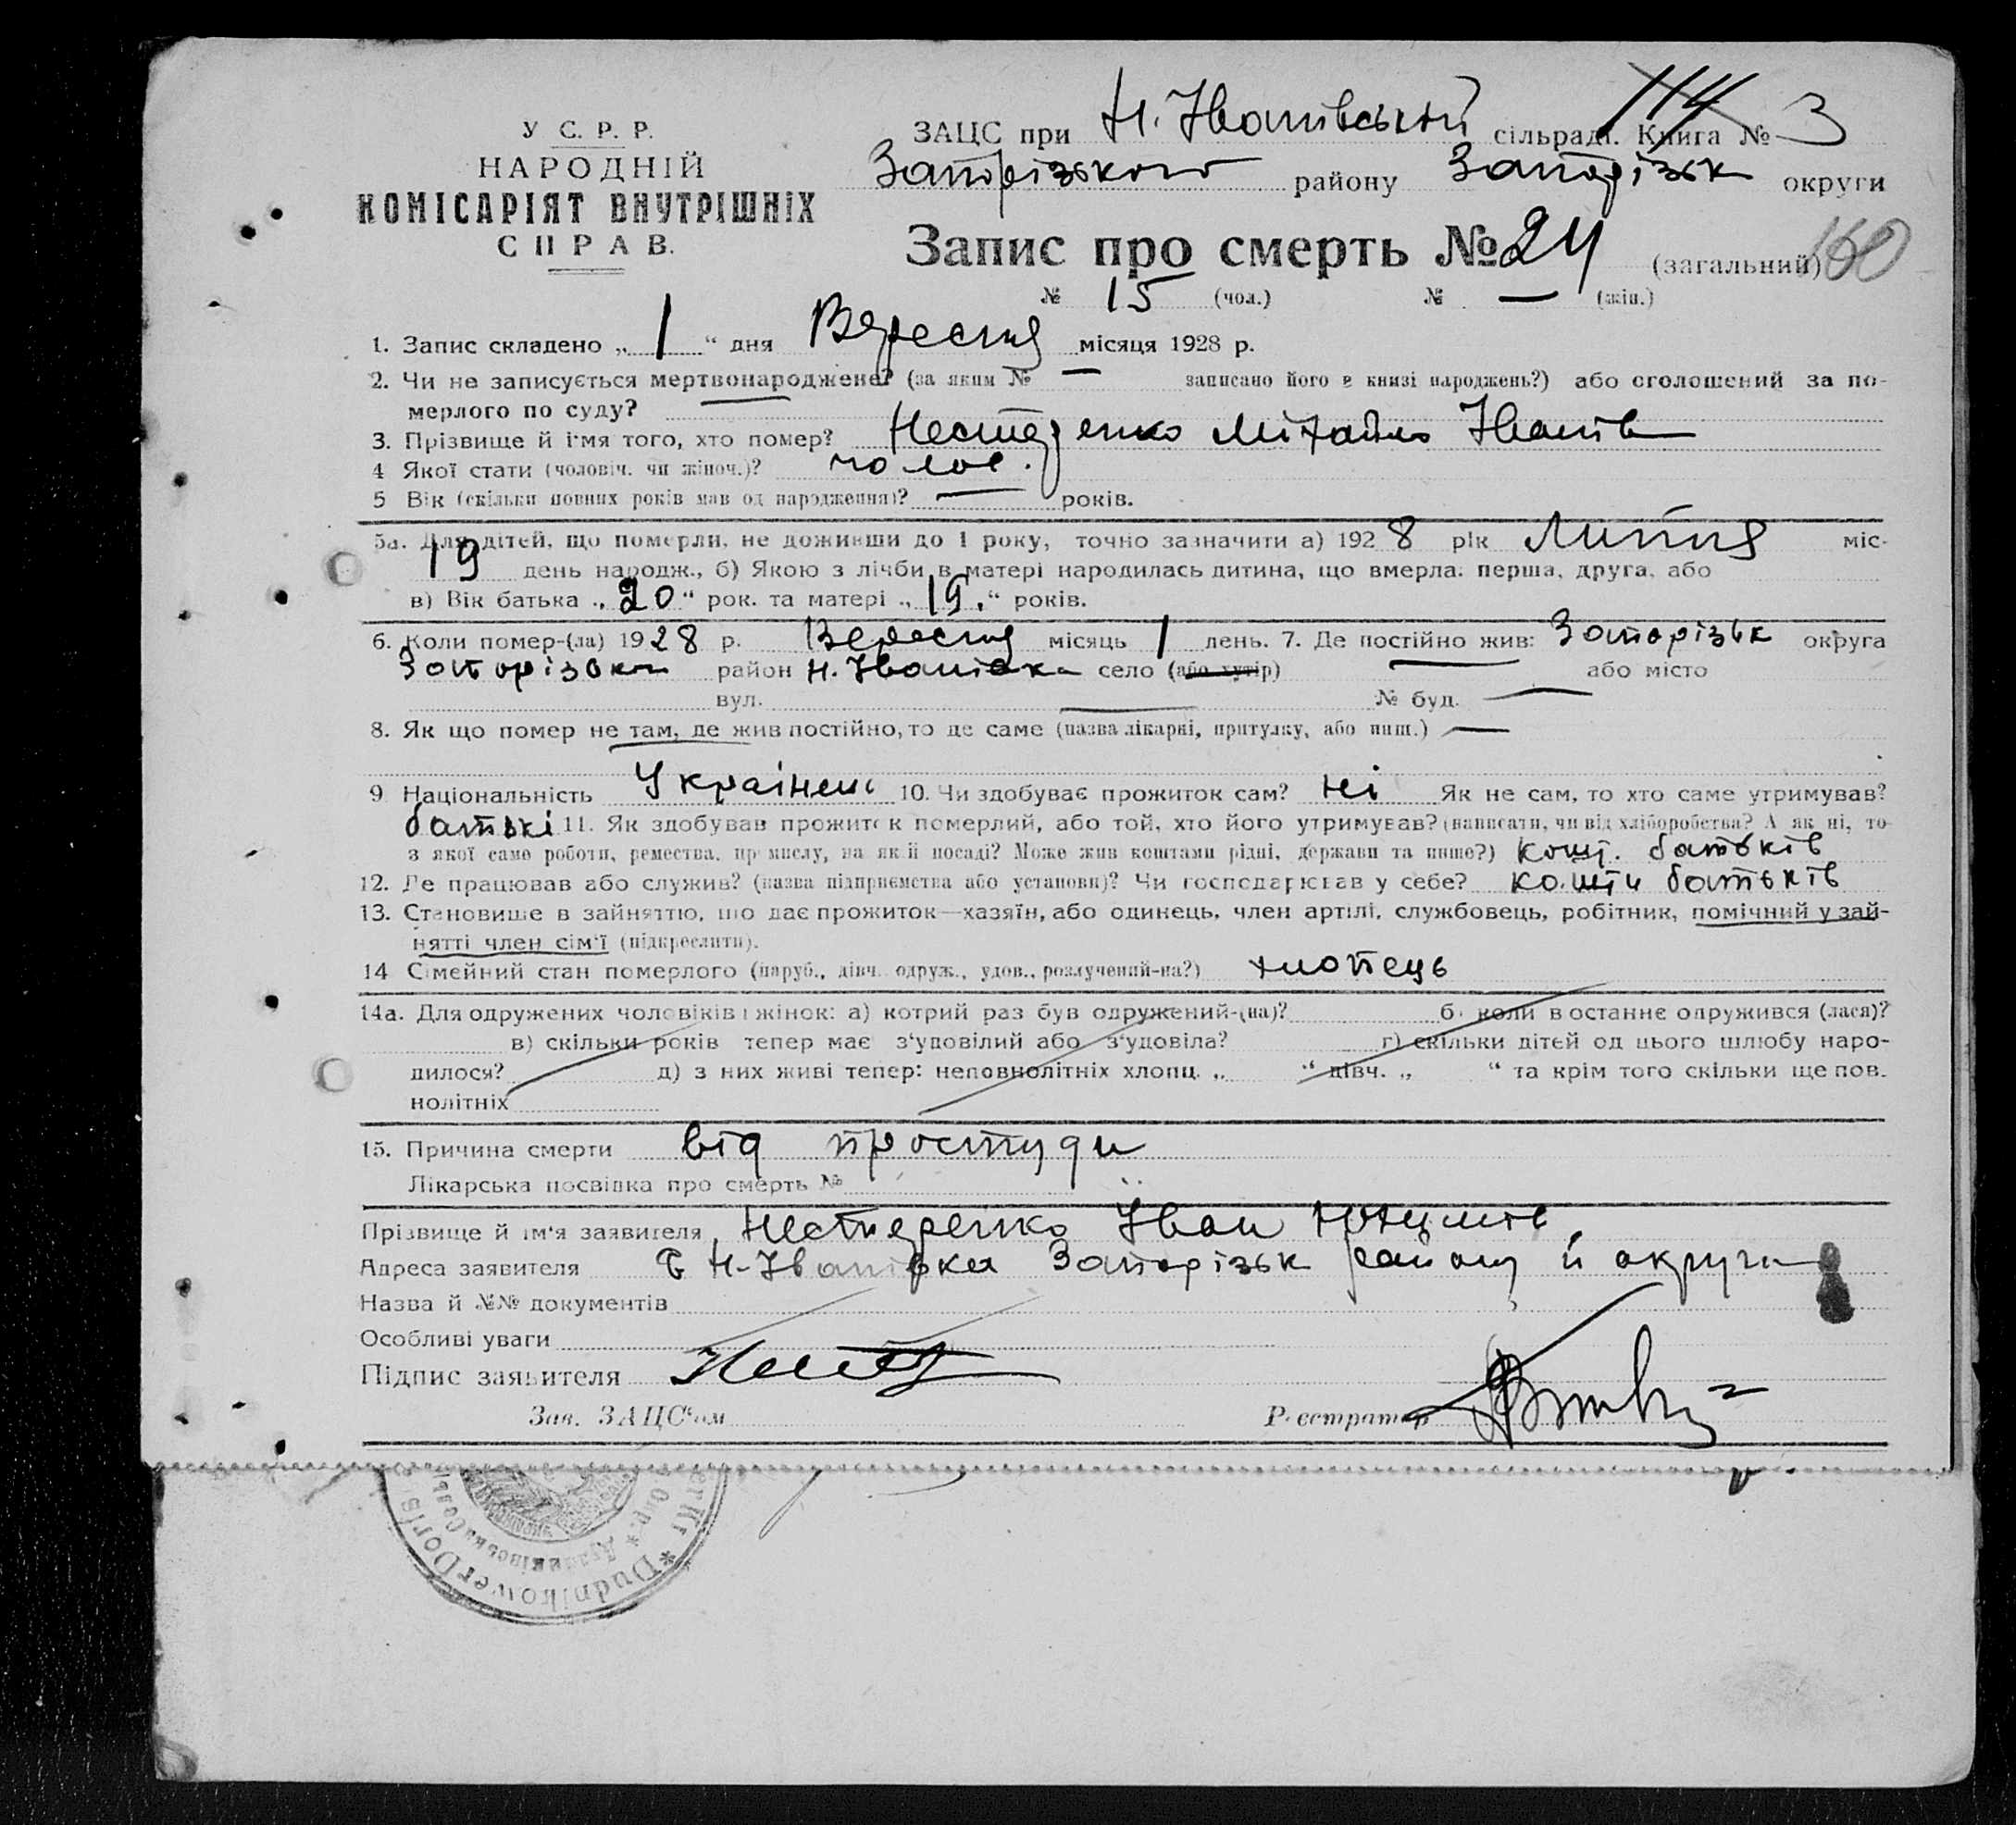 У С. Р. Р.
НАРОДНІЙ
КОМІСАРІЯТ ВНУТРІШНІХ
СПРАВ.
ЗАЦС при Н. Іванівській сільраді. Книга № 3
Запорізького району Запорізьк округи
Запис про смерть № 24 (загальний) 160
№ 15 (чол.) № — (жін.)
1. Запис складено „ 1 “ дня Вересня місяця 1928 р.
2. Чи не записується мертвонароджене? (за яким № — записано його в книзі народжень?) або оголошений за по-
мерлого по суду?
3. Прізвище й ім'я того, хто помер? Нестеренко Міхайло Іванів
4 Якої стати (чоловіч. чи жіноч.)? чолов.
5 Вік (скільки повних років мав од народження)? — років.
5а. Для дітей, що померли, не доживши до 1 року, точно зазначити а) 1928 рік Липня міс-
19 день народж., б) Якою з лічби в матері народилась дитина, що вмерла: перша, друга, або
в) Вік батька „ 20 “ рок. та матері „ 19. “ років.
6. Коли помер-(ла) 1928 р. Вересня місяць 1 день. 7. Де постійно жив: Запорізьк округа
Запорізьки район Н. Іванівка село (або хутір) — або місто
вул. — № буд. —
8. Як що помер не там, де жив постійно, то де саме (назва лікарні, притулку, або инш.) —
9 Національність Українець 10. Чи здобуває прожиток сам? ні Як не сам, то хто саме утримував?
батькі 11. Як здобував прожиток померлий, або той, хто його утримував? (написати, чи від хліборобства? А як ні, то
з якої саме роботи, ремества, промислу, на якій посаді? Може жив коштами рідні, держави та инше?) кошт. батьків
12. Де працював або служив? (назва підприємства або установи)? Чи господарював у себе? кошти батьків
13. Становище в зайняттю, що дає прожиток—хазяїн, або одинець, член артілі, службовець, робітник, помічний у зай-
нятті член сім'ї (підкреслити).
14 Сімейний стан померлого (паруб., дівч. одруж., удов., розлучений-на?) хлопець
14а. Для одружених чоловіків і жінок: а) котрий раз був одружений-(на)? б) коли востаннє одружився (лася)?
в) скільки років тепер має з'удовілий або з'удовіла? г) скільки дітей од цього шлюбу наро-
дилося? д) з них живі тепер: неповнолітніх хлопц. „ “ дівч. „ “ та крім того скільки ще пов.
нолітніх
15. Причина смерти від простуди
Лікарська посвідка про смерть №
Прізвище й ім'я заявителя Нестеренко Іван
Адреса заявителя с Н-Іванівка Запорізьк району й округи
Назва й №№ документів
Особливі уваги
Підпис заявителя Нест
Зав. ЗАЦС'ом Реєстратор
* Dudnikower Dorf